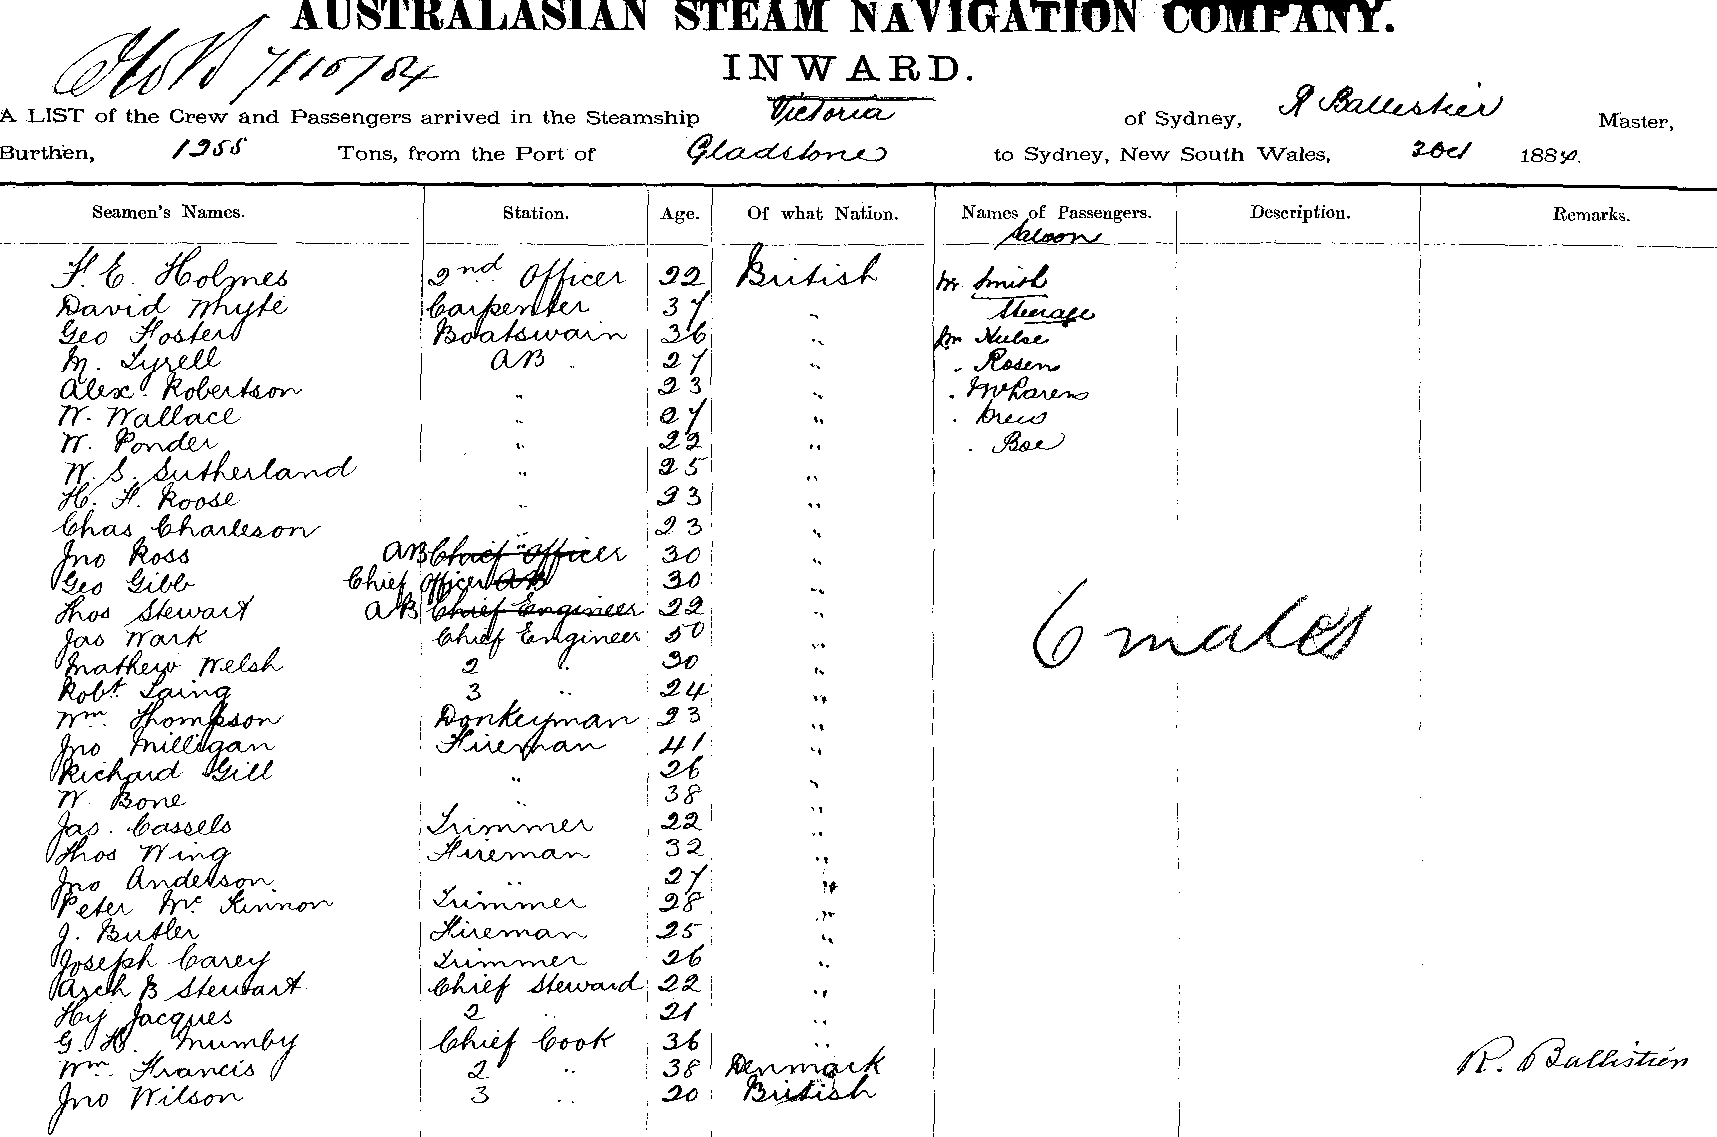 AUSTRALASIAN STEAM NAVIGATION COMPANY.
7/10/84
INWARD.
A LIST of the Crew and Passengers arrived in the Steamship Victoria of Sydney, R Ballistier Master,
Burthen, 1255 Tons, from the Port of Gladstone to Sydney, New South Wales, 3 Oct 1884.
Seamen's Names. Station. Age. Of what Nation. Names of Passengers. Description. Remarks.
Saloon
F. E. Holmes 2nd Officer 22 British Mr Smith
David Whyte Carpenter 37 " Steerage
Geo Foster Boatswain 36 " Mr Hulse
M. Tyrell AB 27 " " Rosen
Alex Robertson " 23 "
W. Wallace " 27 " " Drew
W. Ponder " 22 " " Boe
W. S. Sutherland " 25 "
H. F. Roose " 23 "
Chas Charleson " 23 "
Jno Ross AB Chief Officer 30 "
Geo Gibb Chief Officer AB 30 "
Thos Stewart AB Chief Engineer 22 "
Jas Wark Chief Engineer 50 "
Mathew Welsh 2 " 30 "
Robt Laing 3 " 24 "
Wm. Thompson Donkeyman 23 "
Jno Milligan Fireman 41 "
Richard Gill " 26 "
W. Bone " 38 "
Jas. Cassels Trimmer 22 "
Thos Wing Fireman 32 "
Jno Anderson " 27 "
Peter McKinnon Trimmer 28 "
J. Butler Fireman 25 "
Joseph Carey Trimmer 26 "
Arch B Stewart Chief Steward 22 "
Hy Jacques 2 " 21 "
G. H. Mumby Chief Cook 36 "
Wm. Francis 2 " 38 Denmark
Jno Wilson 3 " 20 British
6 males
R. Ballistier